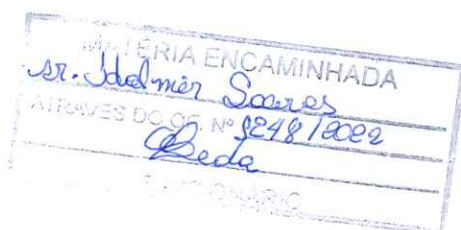 MATÉRIA ENCAMINHADA
Sr. Idalmir Soares
ATRAVÉS DO OF. Nº 5248/2022
FUNCIONÁRIO